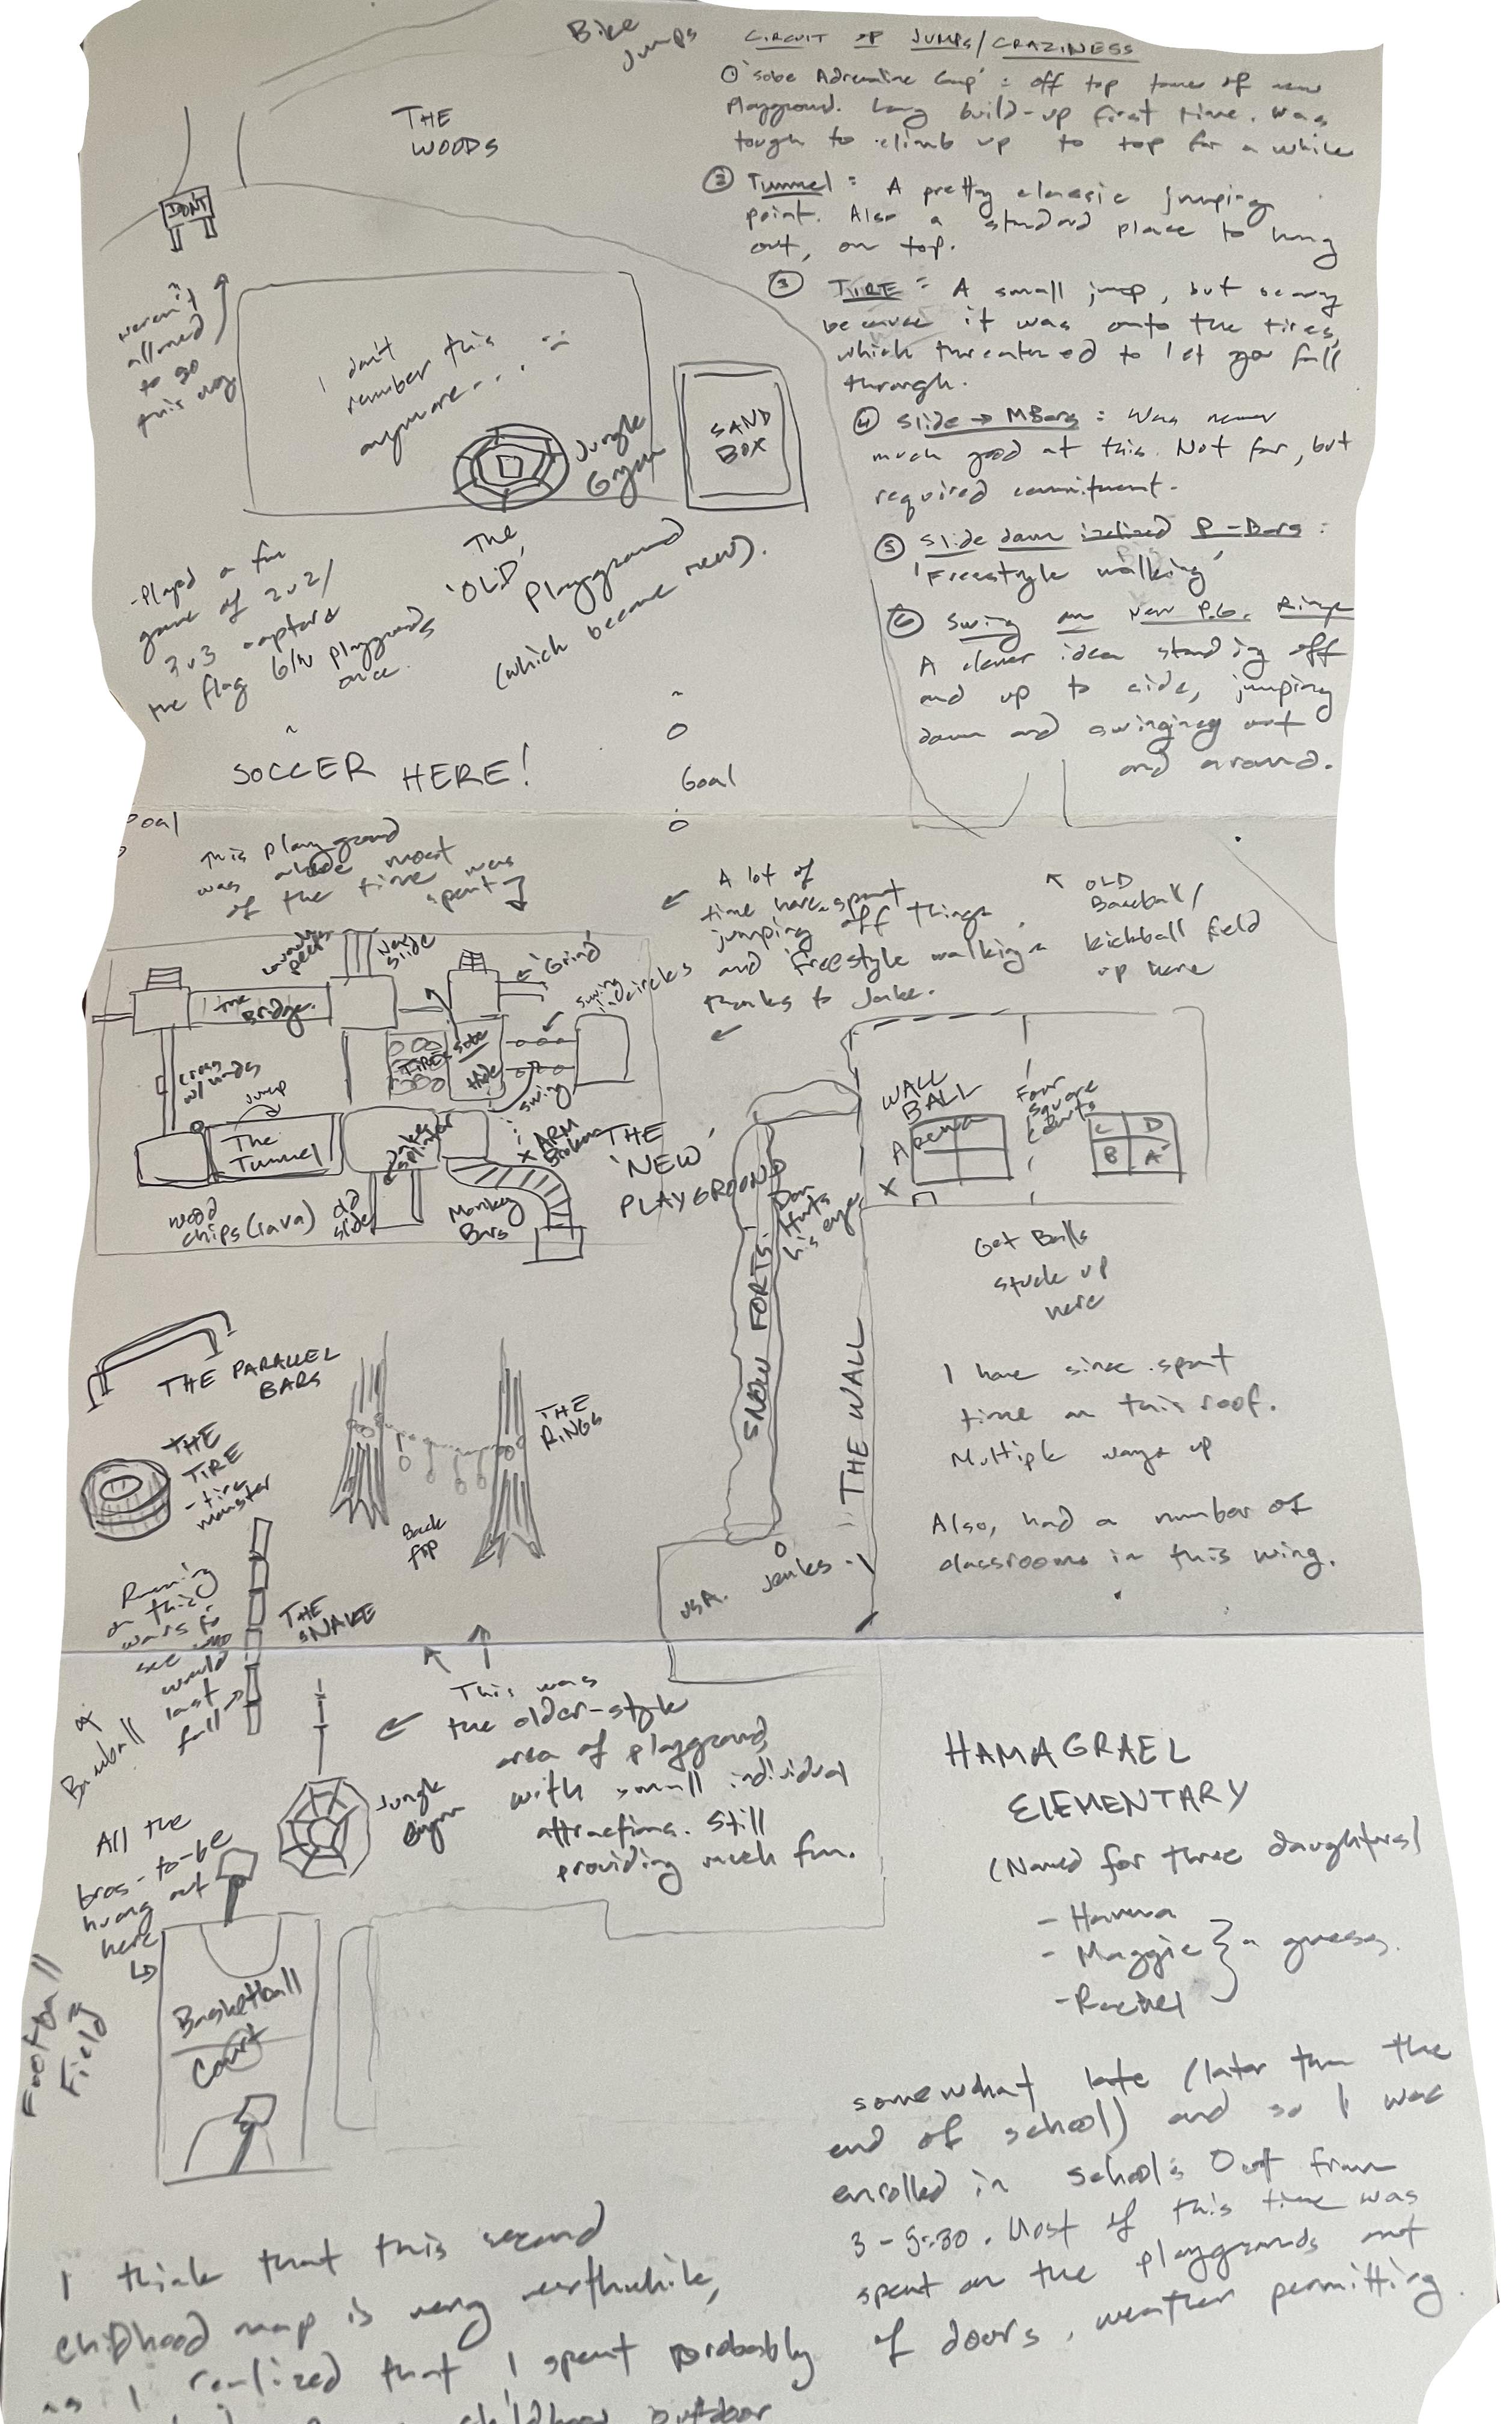 Bike
Jumps
CIRCUIT OF JUMPS/CRAZINESS
① 'Sobe Adrenaline Jump' = off top tower of new
Playground. Long build-up first time. Was
tough to climb up to top for a while
② Tunnel = A pretty classic jumping
point. Also a standard place to hang
out, on top.
③ TIRE = A small jump, but scary
because it was onto the tires,
which threatened to let you fall
through.
④ Slide → MBars = Was never
much good at this. Not far, but
required commitment.
⑤ Slide down inclined P-Bars =
'Freestyle walking'
⑥ Swing on New P.G. Rings
A clever idea standing off
and up to side, jumping
down and swinging out
and around.
THE
WOODS
DON'T
weren't
allowed
to go
this way
I don't
remember this
anymore...
Jungle
Gym
SAND
BOX
The
'OLD'
Playground
(which became new).
- Played a fun
game of 2v2/
3v3 capture
the flag b/w playgrounds
once.
SOCCER HERE!
Goal
Goal
This playground
was where most
of the time was
spent
A lot of
time here spent
jumping off things
and 'freestyle walking'
thanks to Jake.
OLD
Baseball/
kickball field
up here
New
slide
The
Bridge
'Grind'
swing
in circles
cross
w/ hands
Jump
TIRES
Sobe
Hide
swing
The
Tunnel
ARM
Broken
X
THE
'NEW'
PLAYGROUND
wood
chips (lava)
old
slide
Monkey
Bars
WALL
BALL
Arena
X
Four
Square
Courts
C D
B A
Dan
Hurts
his eye
SNOW FORTS
THE WALL
Get Balls
stuck up
here
I have since spent
time on this roof.
Multiple ways up
Also, had a number of
classrooms in this wing.
THE PARALLEL
BARS
THE
TIRE
- tire
monster
THE
RINGS
Back
flip
Running
on this
was to
see who
would
last
fall
THE
SNAKE
Baseball
Jungle
Gym
This was
the older-style
area of playground,
with small individual
attractions. Still
providing much fun.
All the
bros-to-be
hung out
here
Basketball
Court
Football
Field
HAMAGRAEL
ELEMENTARY
(Named for three daughters)
- Hanna
- Maggie } a guess.
- Rachel
somewhat late (later than the
end of school) and so I was
enrolled in School's Out from
3 - 5:30. Most of this time was
spent on the playgrounds out
of doors, weather permitting.
I think that this second
childhood map is very worthwhile,
as I realized that I spent probably
childhood outdoor